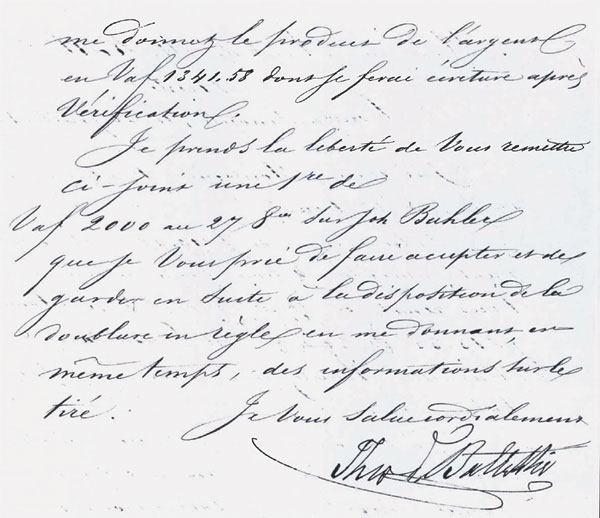 me donnez le produit de l'argent
en Vaf 1341.58 dont je ferai écriture après
Vérification.
Je prends la liberté de Vous remettre
ci-joint une 1re de
Vaf 2000 au 27 8bre sur Joh Buhler
que je Vous prie de faire accepter et de
garder en suite à la disposition de la
doublure en règle en me donnant, en
même temps, des informations sur le
tiré. Je Vous salue cordialement
Theo